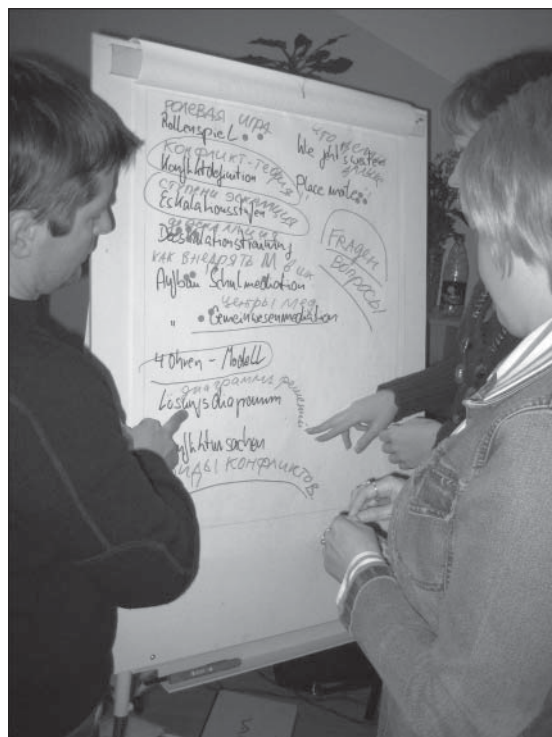 РОЛЕВАЯ ИГРА
Rollenspiel
КОНФЛИКТ-ТЕОРИЯ
Konfliktdefinition
СТУПЕНИ ЭСКАЛАЦИИ
Eskalationsstufen
ДЕЭСКАЛАЦИЯ
Deeskalationstraining
КАК ВНЕДРЯТЬ М В ШК
Aufbau Schulmediation
ЦЕНТРЫ МЕД.
" Gemeinwesenmediation
4 Ohren - Modell
ДИАГРАММА РЕШЕНИЙ
Lösungsdiagramm
ВИДЫ КОНФЛИКТОВ
ЧТО ЕСЛИ
We ihl system
Place mate
FRAGEN
ВОПРОСЫ
5